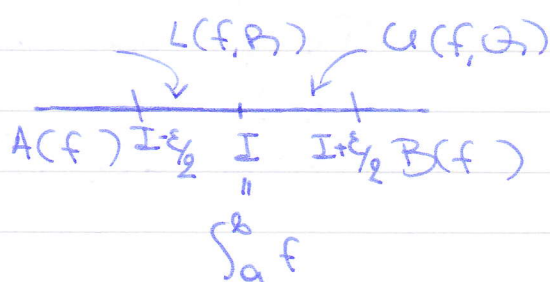 L(f,P₁) U(f,P₂)
A(f) I-ε/2 I I+ε/2 B(f)
=
∫ₐᵇ f